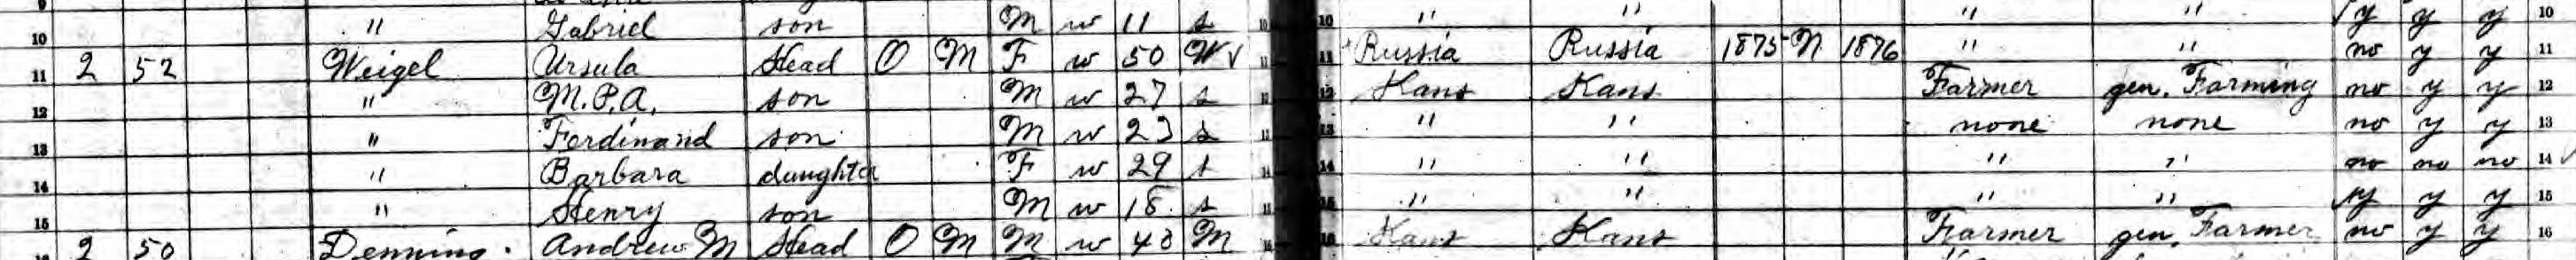 10 " Gabriel son M w 11 s 10 10 " " " " y y y 10
11 2 52 Weigel Ursula Head O M F w 50 Wv 11 11 Russia Russia 1875 N 1876 " " no y y 11
12 " M.P.A. son M w 27 s 12 12 Kans Kans Farmer gen. Farming no y y 12
13 " Ferdinand son M w 23 s 13 13 " " none none no y y 13
14 " Barbara daughter F w 29 s 14 14 " " " " no no no 14
15 " Henry son M w 18 s 15 15 " " " " y y y 15
2 50 Denning Andrew M Head O M M w 40 M 16 16 Kans Kans Farmer gen. Farmer no y y 16